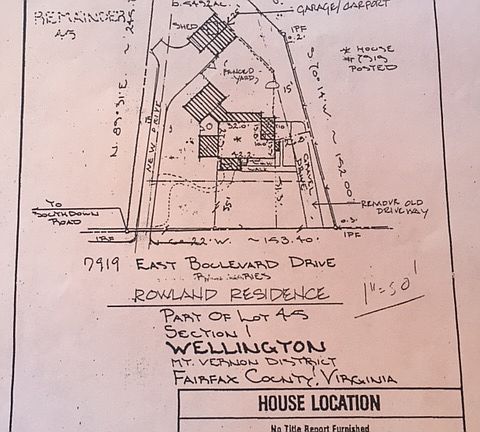 REMAINDER
4-5
GARAGE/CARPORT
SHED
IPF
0.2'
* HOUSE
# 7919
POSTED
FENCED
YARD
15'
NEW DRIVE
GRAVEL
DRIVE
WALK
REMOVE OLD
DRIVEWAY
TO
SOUTHDOWN
ROAD
0.3
IRF
22' W. ~ 153.40'
IPF
7919 EAST BOULEVARD DRIVE
ROWLAND RESIDENCE
1"=50'
PART OF LOT 4-5
SECTION 1
WELLINGTON
MT. VERNON DISTRICT
FAIRFAX COUNTY, VIRGINIA
HOUSE LOCATION
No Title Report Furnished